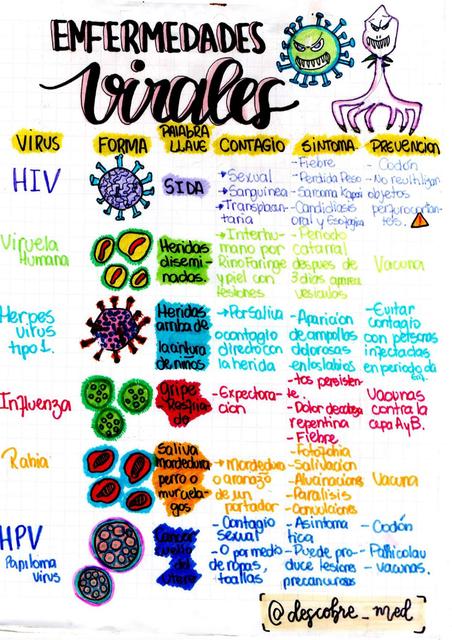 ENFERMEDADES
virales
VIRUS FORMA PALABRA LLAVE CONTAGIO SINTOMA PREVENCION
HIV
SIDA
→ Sexual
→ Sanguinea
→ Transplan-
taria
- Fiebre
- Perdida Peso
- Sarcoma Kaposi
- Candidiasis
oral y Esofagica
- Codón
- No reutilizar
objetos
tes.
Viruela
Humana
Heridas
disemi-
nadas.
→ Interhu-
mano por
RinoFaringe
y piel con
lesiones
- Periodo
catarral
despues de
3 dias aparece
vesiculas
Vacuna
Herpes
virus
tipo 1.
Heridas
arriba de
la cintura
de niños
→ Por saliva
o contagio
directo con
la herida
- Aparicion
de ampollas
dolorosas
en los labios
- Evitar
contagio
con personas
infectadas
en periodo de
Influenza
Gripe
Resfria
do
- Expectora-
cion
- tos persisten-
te.
- Dolor de cabeza
repentina
- Fiebre
Vacunas
contra la
cepa A y B.
Rabia
Saliva
mordedura
perro o
murciela-
gos
→ Mordedura
o arañazo
de un
portador
- Fotofobia
- Salivacion
- Alucinaciones
- Paralisis
- Convulciones
Vacuna
HPV
Papiloma
virus
Cancer
cuello del
utero
- Contagio
sexual
- O por medio
de ropas,
toallas
- Asintoma
tica
- Puede pro-
duce lesiones
precancerosas
- Codón
- Pathicolau
- vacunas.
@descobre_med